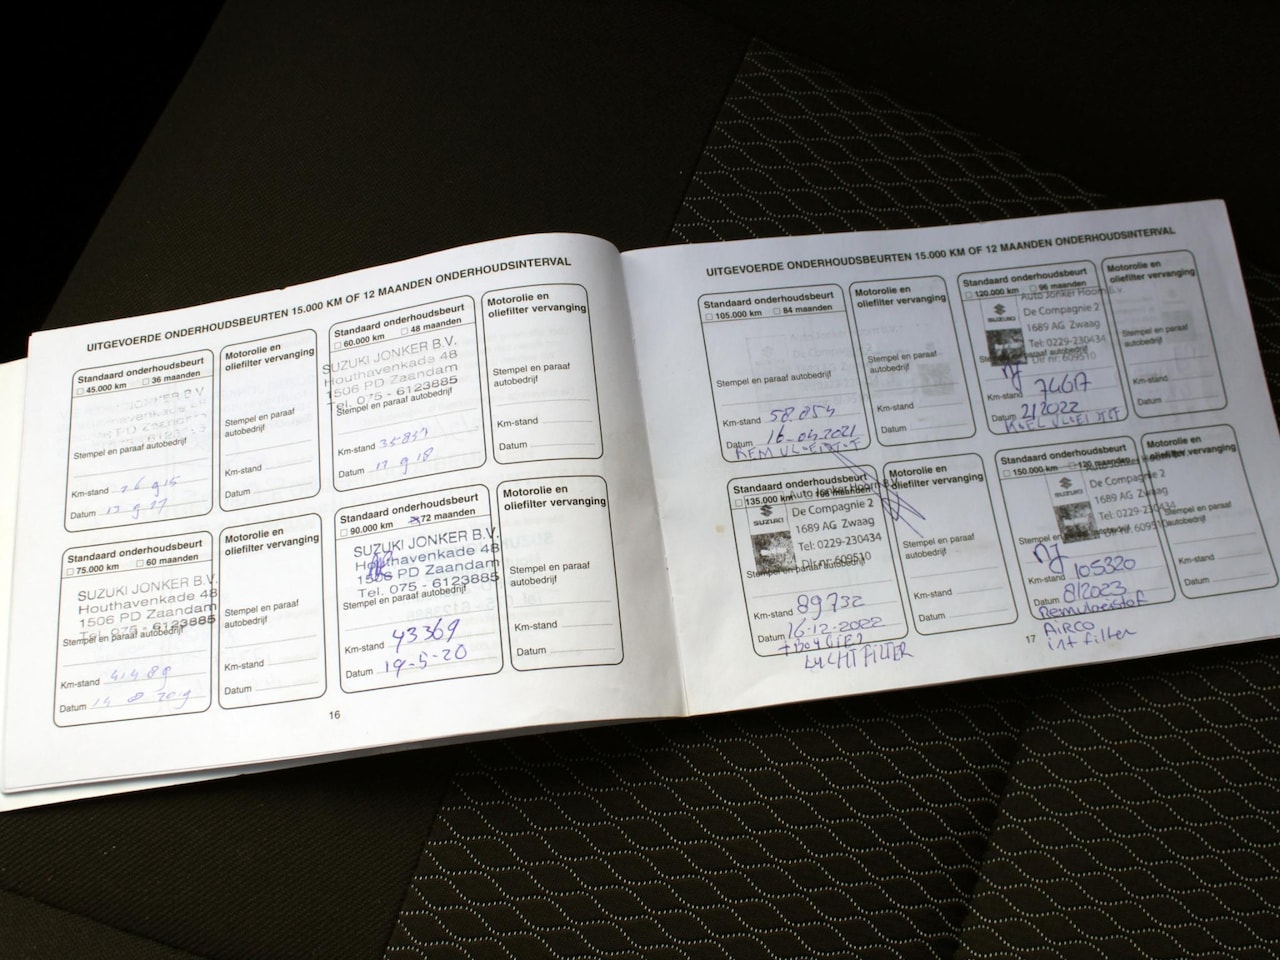 UITGEVOERDE ONDERHOUDSBEURTEN 15.000 KM OF 12 MAANDEN ONDERHOUDSINTERVAL
Standaard onderhoudsbeurt
45.000 km 36 maanden
Stempel en paraaf autobedrijf
Km-stand
Datum
Motorolie en
oliefilter vervanging
Stempel en paraaf
autobedrijf
Km-stand
Datum
Standaard onderhoudsbeurt
60.000 km 48 maanden
SUZUKI JONKER B.V.
Houthavenkade 48
1506 PD Zaandam
Tel. 075 - 6123885
Stempel en paraaf autobedrijf
Km-stand
Datum
Motorolie en
oliefilter vervanging
Stempel en paraaf
autobedrijf
Km-stand
Datum
Standaard onderhoudsbeurt
75.000 km 60 maanden
SUZUKI JONKER B.V.
Houthavenkade 48
1506 PD Zaandam
Tel. 075 - 6123885
Stempel en paraaf autobedrijf
Km-stand
Datum
Motorolie en
oliefilter vervanging
Stempel en paraaf
autobedrijf
Km-stand
Datum
Standaard onderhoudsbeurt
90.000 km 72 maanden
SUZUKI JONKER B.V.
Houthavenkade 48
1506 PD Zaandam
Tel. 075 - 6123885
Stempel en paraaf autobedrijf
Km-stand 43369
Datum 19-5-20
Motorolie en
oliefilter vervanging
Stempel en paraaf
autobedrijf
Km-stand
Datum
16
UITGEVOERDE ONDERHOUDSBEURTEN 15.000 KM OF 12 MAANDEN ONDERHOUDSINTERVAL
Standaard onderhoudsbeurt
105.000 km 84 maanden
Stempel en paraaf autobedrijf
Km-stand 58.854
Datum 16-04-2021
REMVLOEISTOF
Motorolie en
oliefilter vervanging
Stempel en paraaf
autobedrijf
Km-stand
Datum
Standaard onderhoudsbeurt
120.000 km 96 maanden
Auto Jonker Hoorn B.V.
De Compagnie 2
SUZUKI 1689 AG Zwaag
Tel: 0229-230434
Dlr nr: 609510
Stempel en paraaf autobedrijf
Km-stand
Datum 2/2022
KOELVLOEISTOF
Motorolie en
oliefilter vervanging
Stempel en paraaf
autobedrijf
Km-stand
Datum
Standaard onderhoudsbeurt
135.000 km 108 maanden
Auto Jonker Hoorn B.V.
De Compagnie 2
SUZUKI 1689 AG Zwaag
Tel: 0229-230434
Dlr nr: 609510
Stempel en paraaf autobedrijf
Km-stand 89732
Datum 16-12-2022
+ BOUGIES
LUCHTFILTER
Motorolie en
oliefilter vervanging
Stempel en paraaf
autobedrijf
Km-stand
Datum
Standaard onderhoudsbeurt
150.000 km 120 maanden
De Compagnie 2
SUZUKI 1689 AG Zwaag
Tel: 0229-230434
Stempel en paraaf
Km-stand 105320
Datum 8/2023
Remvloeistof
AIRCO
int filter
Motorolie en
oliefilter vervanging
Stempel en paraaf
autobedrijf
Km-stand
Datum
17